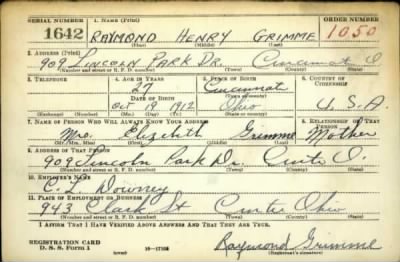 SERIAL NUMBER 1. NAME (Print) ORDER NUMBER
1642 RAYMOND HENRY GRIMME 1050
(First) (Middle) (Last)
2. ADDRESS (Print)
909 LINCOLN PARK DR. Cincinnati O
(Number and street or R. F. D. number) (Town) (County) (State)
3. TELEPHONE 4. AGE IN YEARS 5. PLACE OF BIRTH 6. COUNTRY OF CITIZENSHIP
27 Cincinnati
DATE OF BIRTH (Town or county)
Oct 19 1912 Ohio U.S.A.
(Exchange) (Number) (Mo.) (Day) (Yr.) (State or country)
7. NAME OF PERSON WHO WILL ALWAYS KNOW YOUR ADDRESS 8. RELATIONSHIP OF THAT PERSON
Mrs. Elizabeth Grimme Mother
(Mr., Mrs., Miss) (First) (Middle) (Last)
9. ADDRESS OF THAT PERSON
909 Lincoln Park Dr. Cinti O.
(Number and street or R. F. D. number) (Town) (County) (State)
10. EMPLOYER'S NAME
C. L. Downey
11. PLACE OF EMPLOYMENT OR BUSINESS
943 Clark St Cinti Ohio
(Number and street or R. F. D. number) (Town) (County) (State)
I AFFIRM THAT I HAVE VERIFIED ABOVE ANSWERS AND THAT THEY ARE TRUE.
REGISTRATION CARD
D. S. S. Form 1 (over) 16-17105 Raymond Grimme
(Registrant's signature)